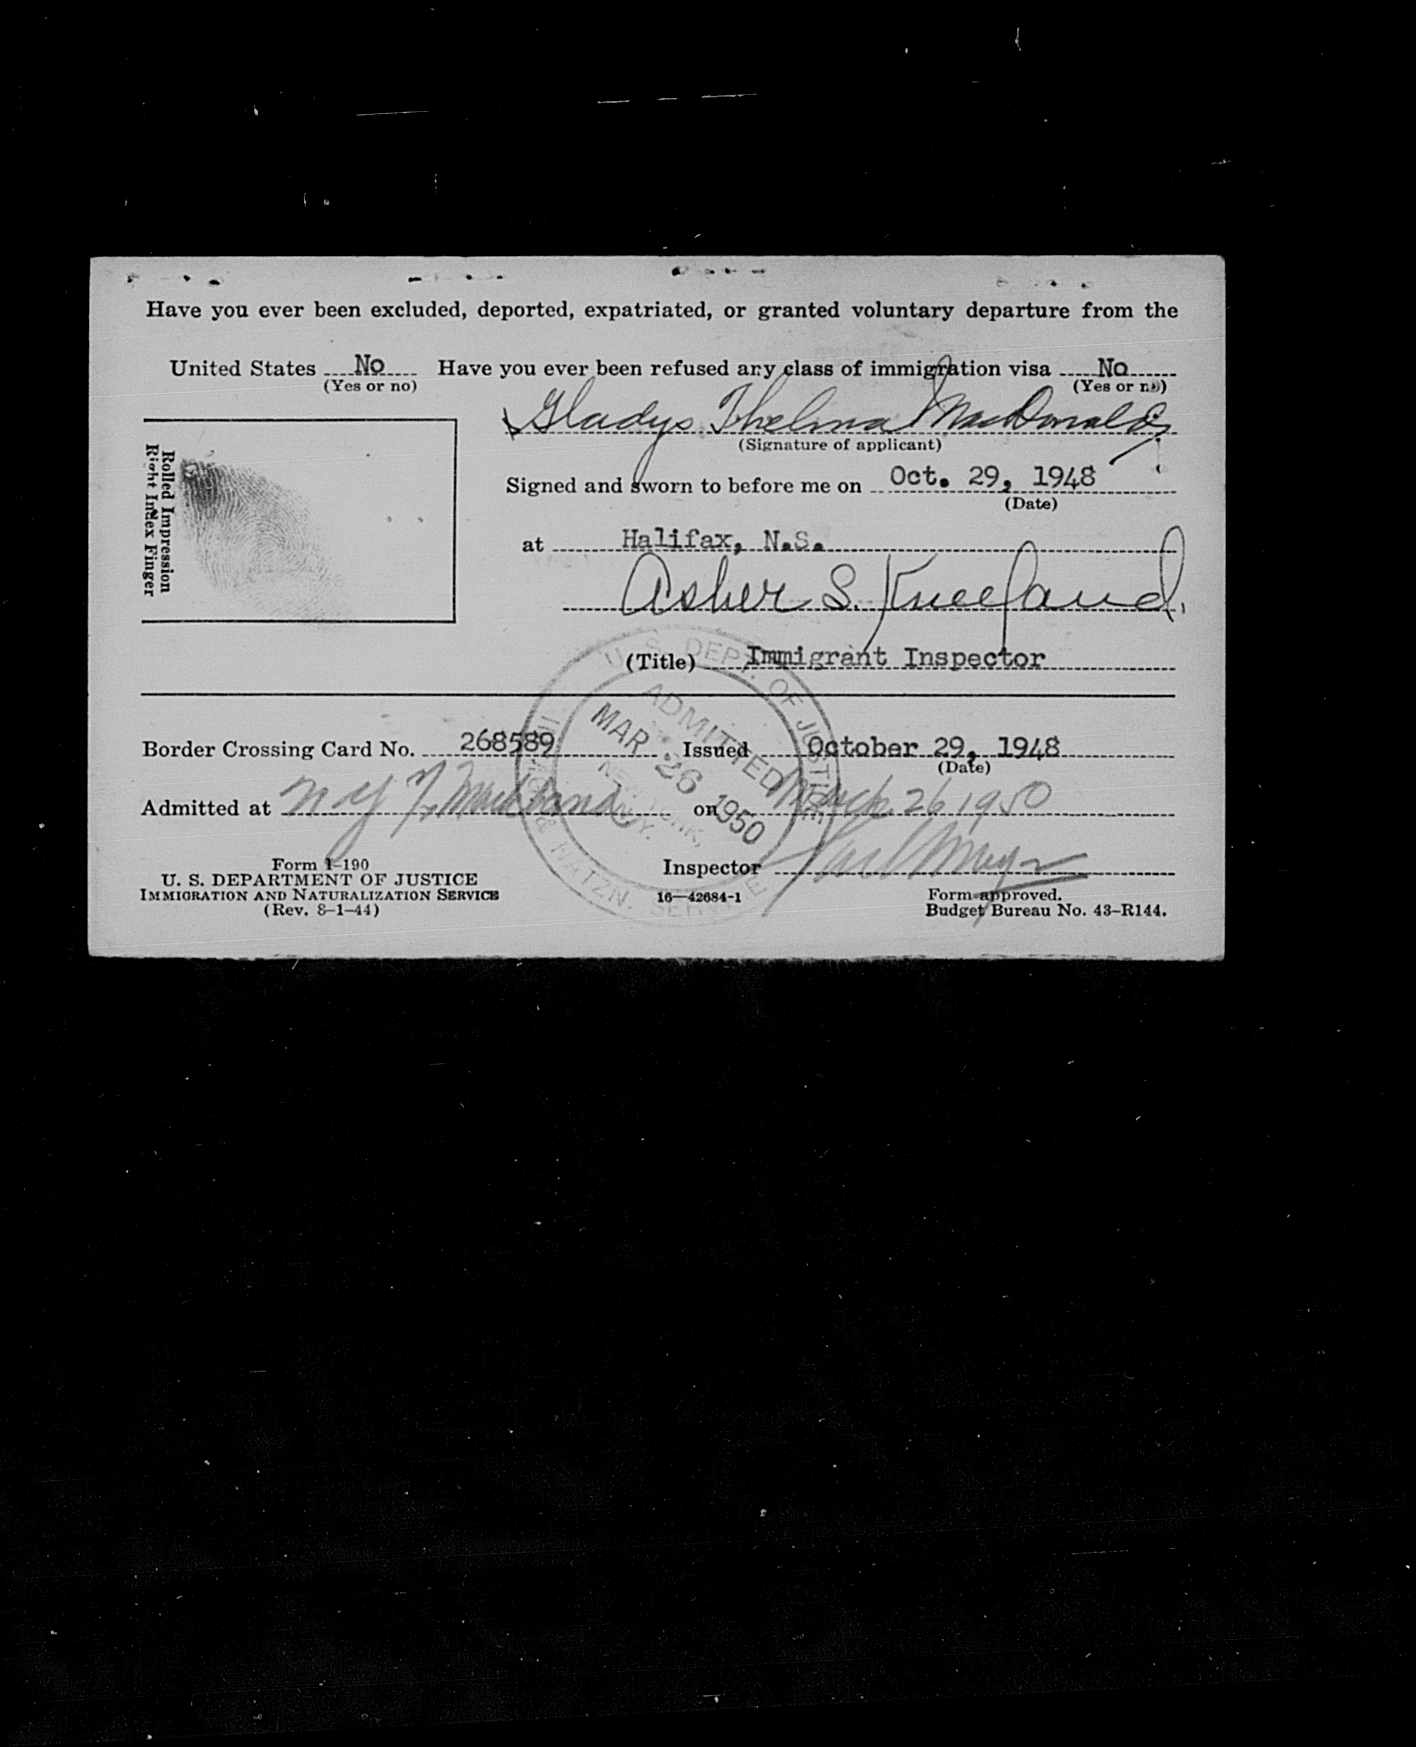 Have you ever been excluded, deported, expatriated, or granted voluntary departure from the
United States No Have you ever been refused any class of immigration visa No
(Yes or no) (Yes or no)
Gladys Thelma MacDonald
(Signature of applicant)
Rolled Impression
Right Index Finger
Signed and sworn to before me on Oct. 29, 1948
(Date)
at Halifax, N.S.
Asher S. Kneeland
(Title) Immigrant Inspector
U. S. DEPT. OF JUSTICE
ADMITTED
MAR 26 1950
NEW YORK,
N.Y.
IMMI & NATZN. SERVICE
Border Crossing Card No. 268589 Issued October 29, 1948
(Date)
Admitted at N Y on March 26 1950
Inspector
Form I-190
U. S. DEPARTMENT OF JUSTICE
IMMIGRATION AND NATURALIZATION SERVICE
(Rev. 8-1-44)
16—42684-1
Form approved.
Budget Bureau No. 43-R144.